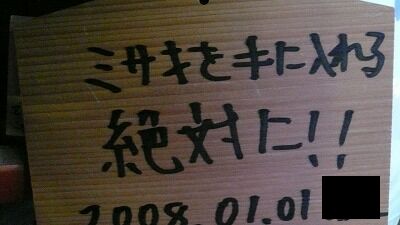 ミサキを手に入れる
絶対に!!
2008.01.01